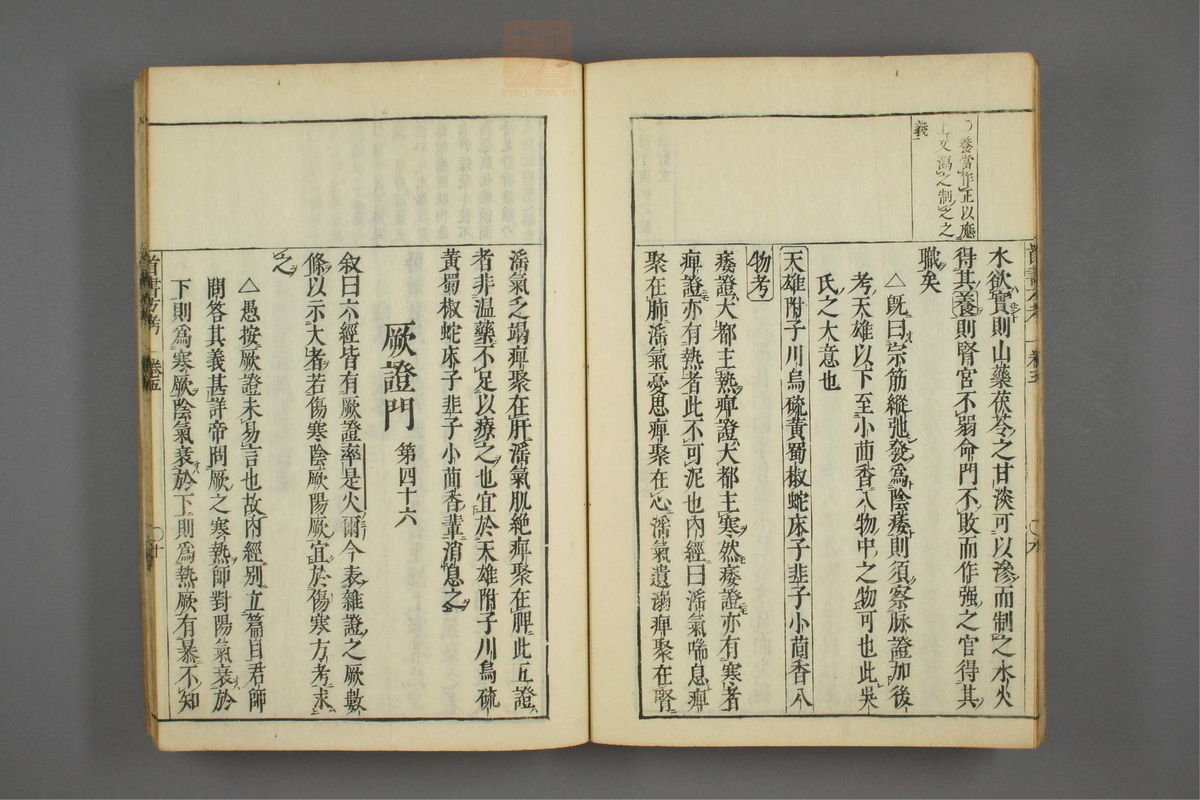 養當作正以應
上文瀉之制之之
義
水欲實則山藥茯苓之甘淡可以滲而制之水火
得其養則腎宮不弱命門不敗而作強之官得其
職矣
△既曰宗筋縱弛發爲陰痿則須察脉證加後
考天雄以下至小茴香八物中之物可也此吳
氏之大意也
天雄附子川烏硫黃蜀椒蛇床子韭子小茴香八
物考
痿證大都主熱痺證大都主寒然痿證亦有寒者
痺證亦有熱者此不可泥也內經曰淫氣喘息痺
聚在肺淫氣憂思痺聚在心淫氣遺溺痺聚在腎
淫氣乏竭痺聚在肝淫氣肌絶痺聚在脾此五證
者非温藥不足以療之也宜於天雄附子川烏硫
黃蜀椒蛇床子韭子小茴香輩消息之
厥證門 第四十六
叙曰六經皆有厥證率是火爾今表雜證之厥數
條以示大者若傷寒陰厥陽厥宜於傷寒方考求
之
△愚按厥證未易言也故內經別立篇目君師
問答其義甚詳帝問厥之寒熱師對陽氣衰於
下則爲寒厥陰氣衰於下則爲熱厥有暴不知
首書方考 卷五 〇十